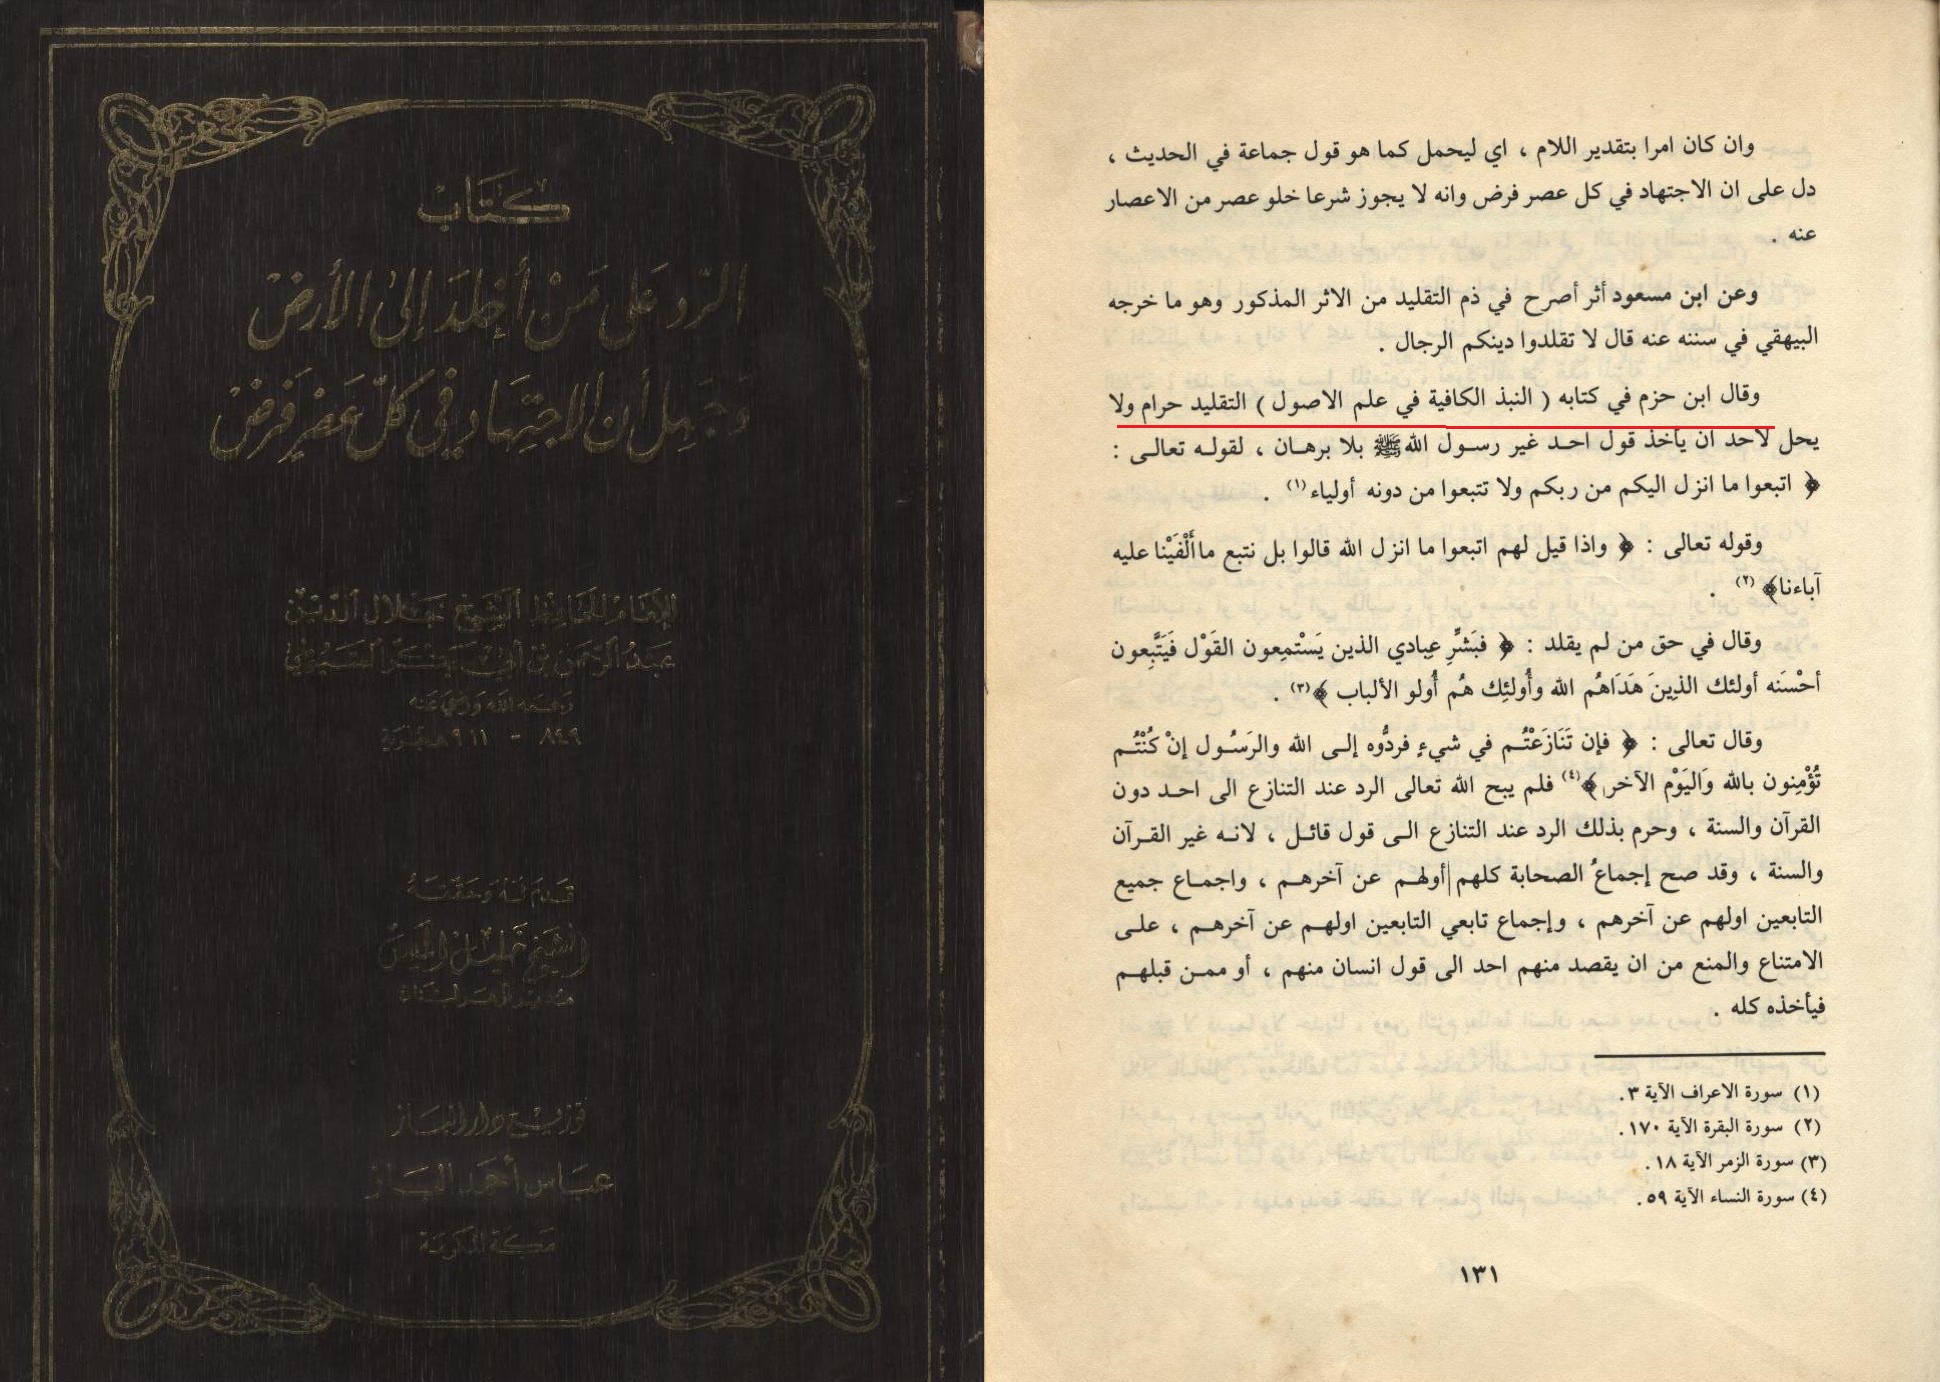 كتاب
الرد على من أخلد إلى الأرض
وجهل أن الاجتهاد في كل عصر فرض
للإمام الحافظ الشيخ جلال الدين
عبد الرحمن بن أبي بكر السيوطي
رحمه الله ورضي عنه
٨٤٩ - ٩١١ هجرية
قدم له وحققه
الشيخ خليل الميس
مدير أزهر لبنان
توزيع دار الباز
عباس أحمد الباز
مكة المكرمة
وان كان امرا بتقدير اللام ، اي ليحمل كما هو قول جماعة في الحديث ،
دل على ان الاجتهاد في كل عصر فرض وانه لا يجوز شرعا خلو عصر من الاعصار
عنه .
وعن ابن مسعود أثر أصرح في ذم التقليد من الاثر المذكور وهو ما خرجه
البيهقي في سننه عنه قال لا تقلدوا دينكم الرجال .
وقال ابن حزم في كتابه ( النبذ الكافية في علم الاصول ) التقليد حرام ولا
يحل لاحد ان يأخذ قول احد غير رسول الله ﷺ بلا برهان ، لقوله تعالى :
﴿ اتبعوا ما انزل اليكم من ربكم ولا تتبعوا من دونه أولياء (١) .
وقوله تعالى : ﴿ واذا قيل لهم اتبعوا ما انزل الله قالوا بل نتبع ما أَلْفَيْنا عليه
آباءنا﴾ (٢) .
وقال في حق من لم يقلد : ﴿ فبَشِّرِ عِبادي الذين يَسْتمِعون القَوْل فَيَتَّبِعون
أحْسَنَه أولئك الذِينَ هَدَاهُم الله وأُولئِك هُم أُولو الألباب ﴾ (٣) .
وقال تعالى : ﴿ فإن تَنَازَعْتُم في شيءٍ فردُّوه إلى الله والرَسُول إنْ كُنْتُم
تُؤْمِنون بالله وَاليَوْم الآخر ﴾ (٤) فلم يبح الله تعالى الرد عند التنازع الى احد دون
القرآن والسنة ، وحرم بذلك الرد عند التنازع الى قول قائل ، لانه غير القرآن
والسنة ، وقد صح إجماعُ الصحابة كلهم أولهم عن آخرهم ، واجماع جميع
التابعين اولهم عن آخرهم ، وإجماع تابعي التابعين اولهم عن آخرهم ، على
الامتناع والمنع من ان يقصد منهم احد الى قول انسان منهم ، أو ممن قبلهم
فيأخذه كله .
(١) سورة الاعراف الآية ٣.
(٢) سورة البقرة الآية ١٧٠.
(٣) سورة الزمر الآية ١٨.
(٤) سورة النساء الآية ٥٩.
١٣١